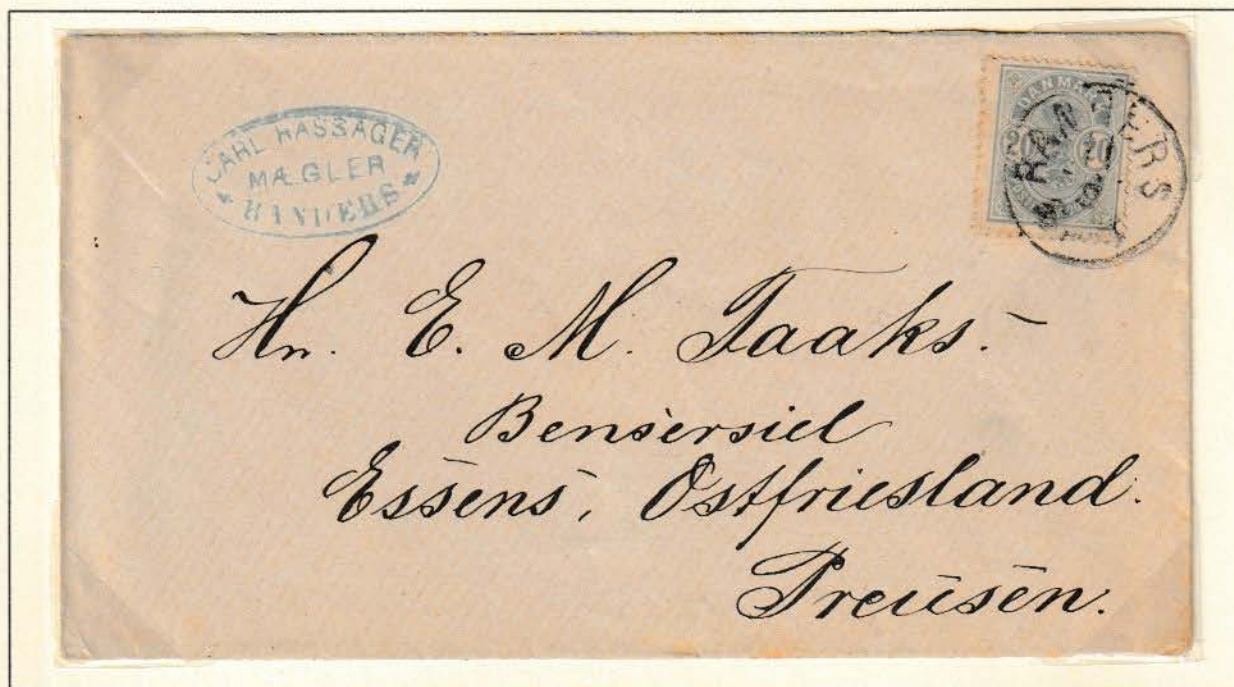 CARL HASSAGER
MÆGLER
RANDERS
DANMARK
20 20
RANDERS
Hr. E. M. Taaks.
Bensersiel
Essens, Ostfriesland.
Preusen.